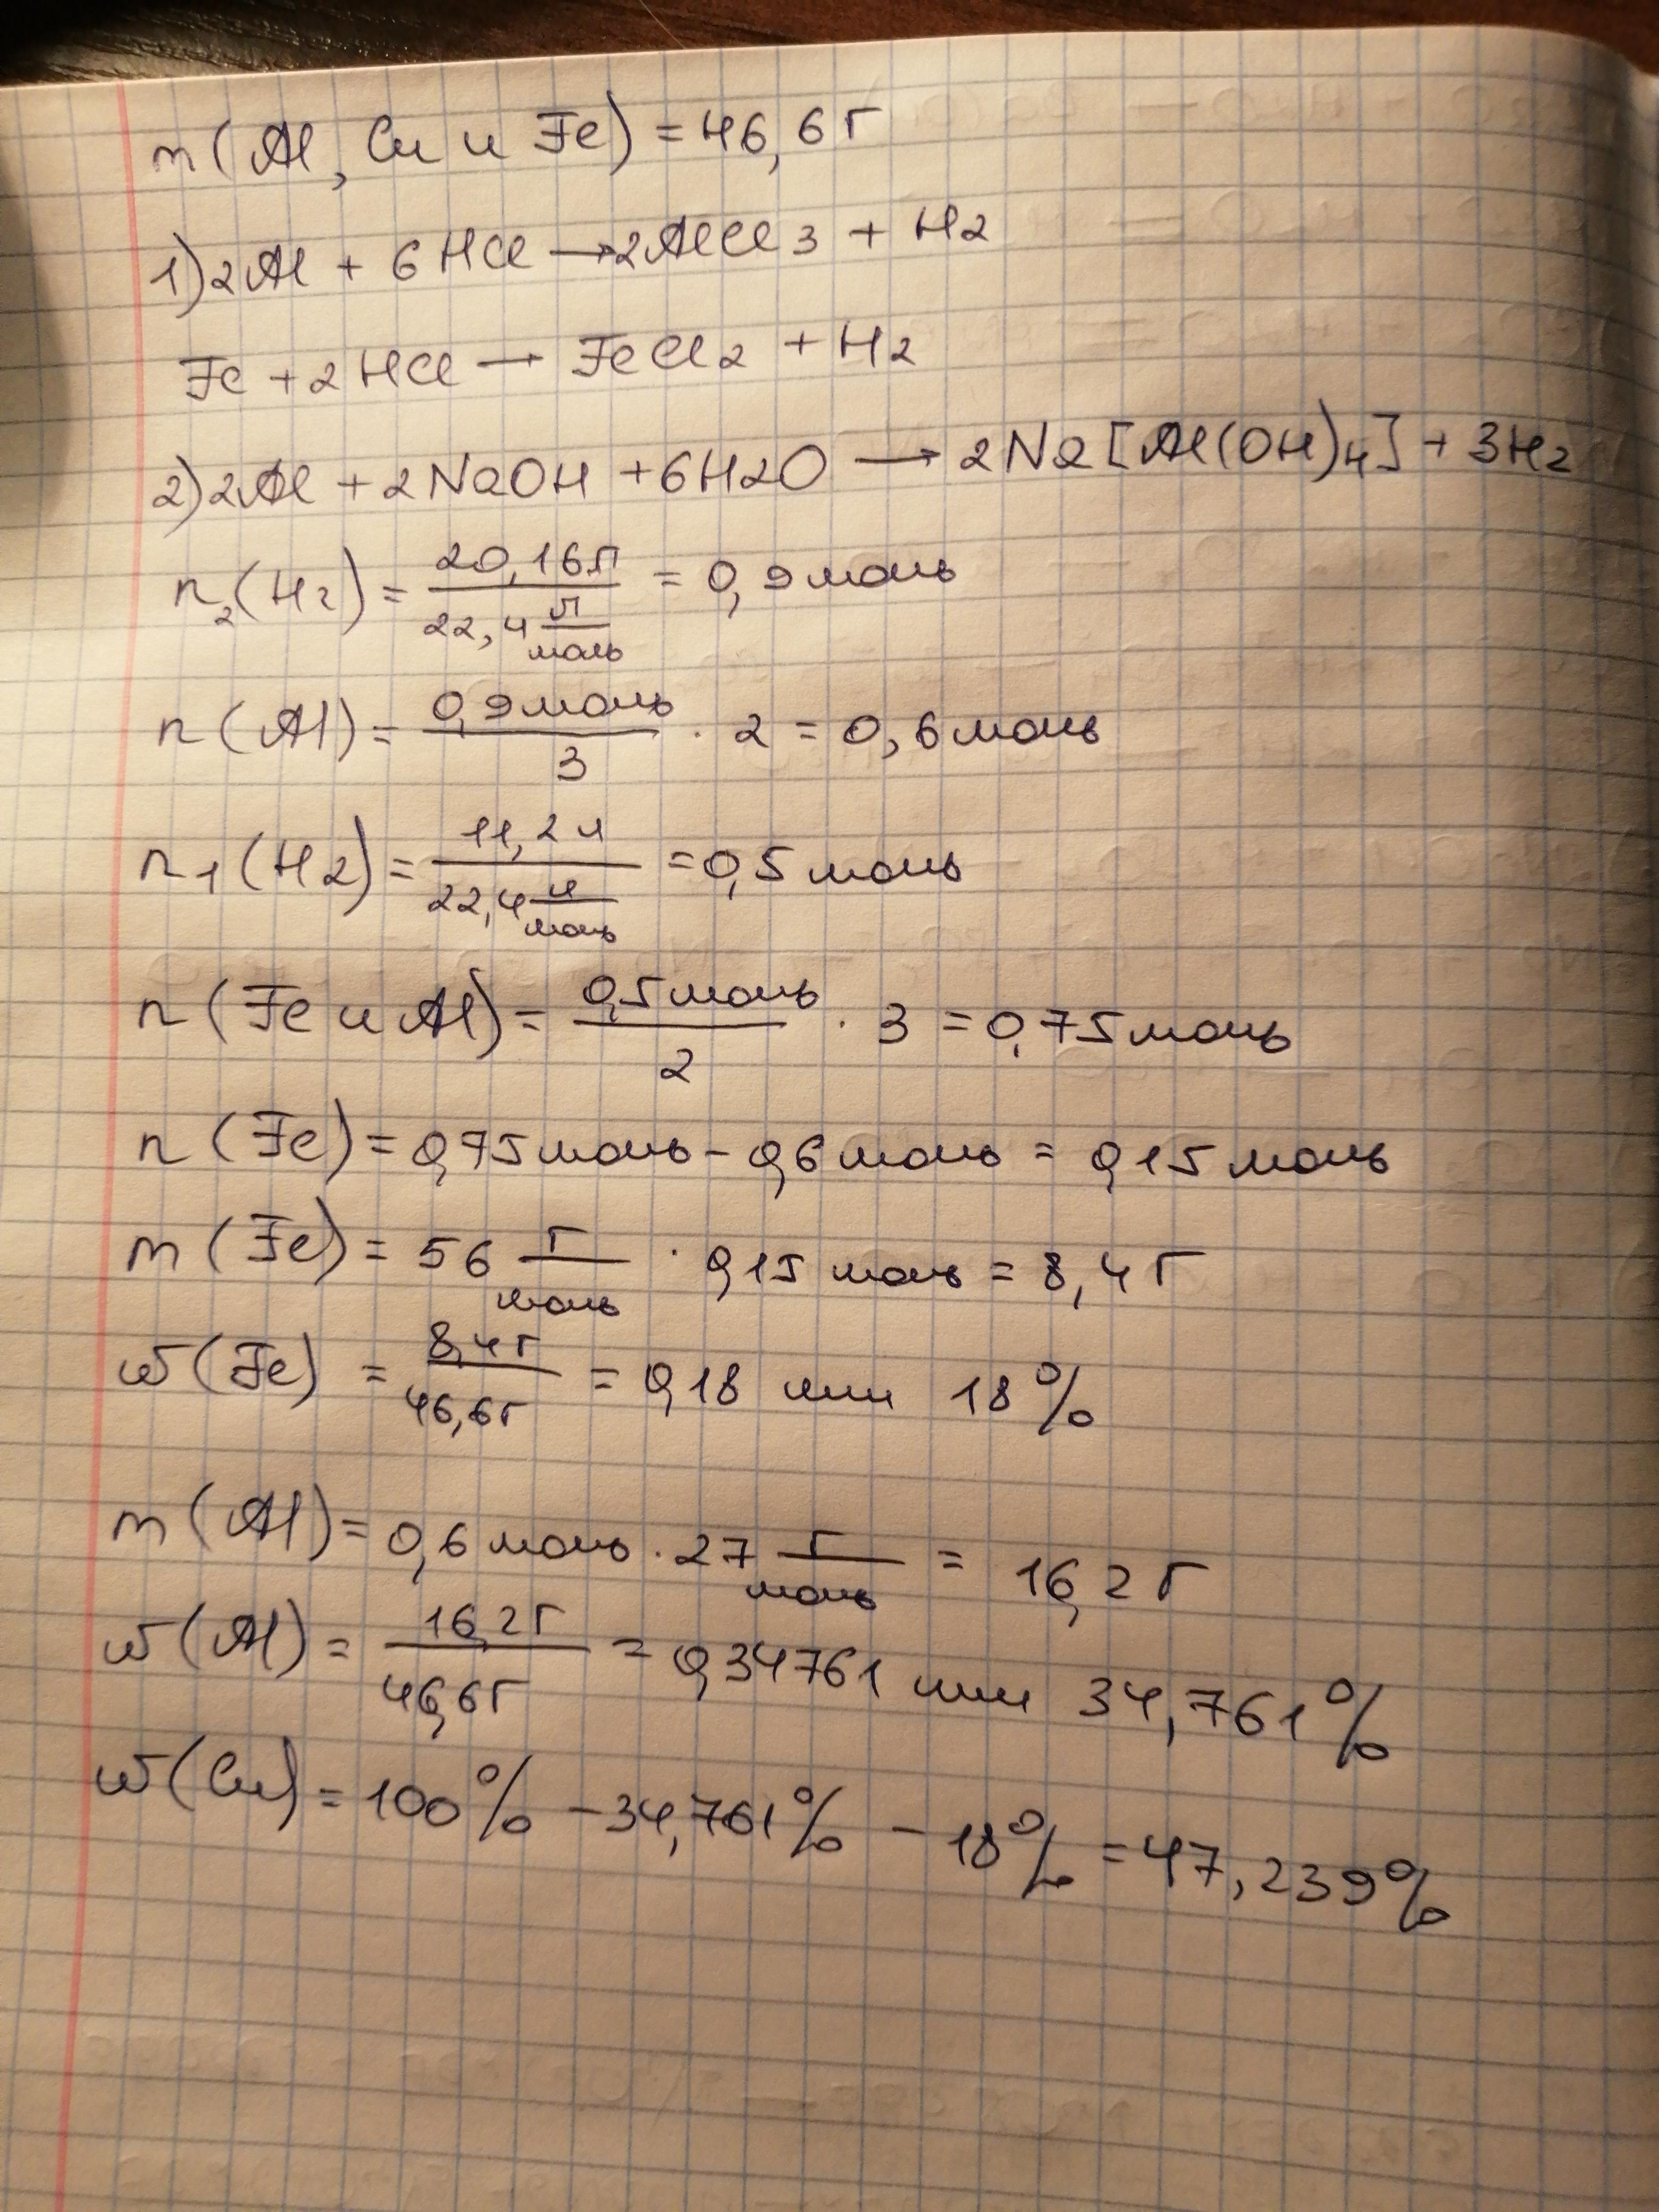 m(Al, Cu и Fe) = 46,6 г
1) 2Al + 6HCl → 2AlCl3 + H2
Fe + 2HCl → FeCl2 + H2
2) 2Al + 2NaOH + 6H2O → 2Na[Al(OH)4] + 3H2
n2(H2) = 20,16 л / 22,4 л/моль = 0,9 моль
n(Al) = 0,9 моль / 3 · 2 = 0,6 моль
n1(H2) = 11,2 л / 22,4 л/моль = 0,5 моль
n(Fe и Al) = 0,5 моль / 2 · 3 = 0,75 моль
n(Fe) = 0,75 моль - 0,6 моль = 0,15 моль
m(Fe) = 56 г/моль · 0,15 моль = 8,4 г
w(Fe) = 8,4 г / 46,6 г = 0,18 или 18%
m(Al) = 0,6 моль · 27 г/моль = 16,2 г
w(Al) = 16,2 г / 46,6 г = 0,34761 или 34,761%
w(Cu) = 100% - 34,761% - 18% = 47,239%